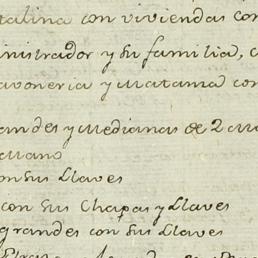 talina con viviendas con
inistrador y su familia, c
avoneria y Matama con
andes y Medianas de 2 Ma
Mano
on sus Llaves
con sus Chapas y Llaves
grandes con sus Llaves